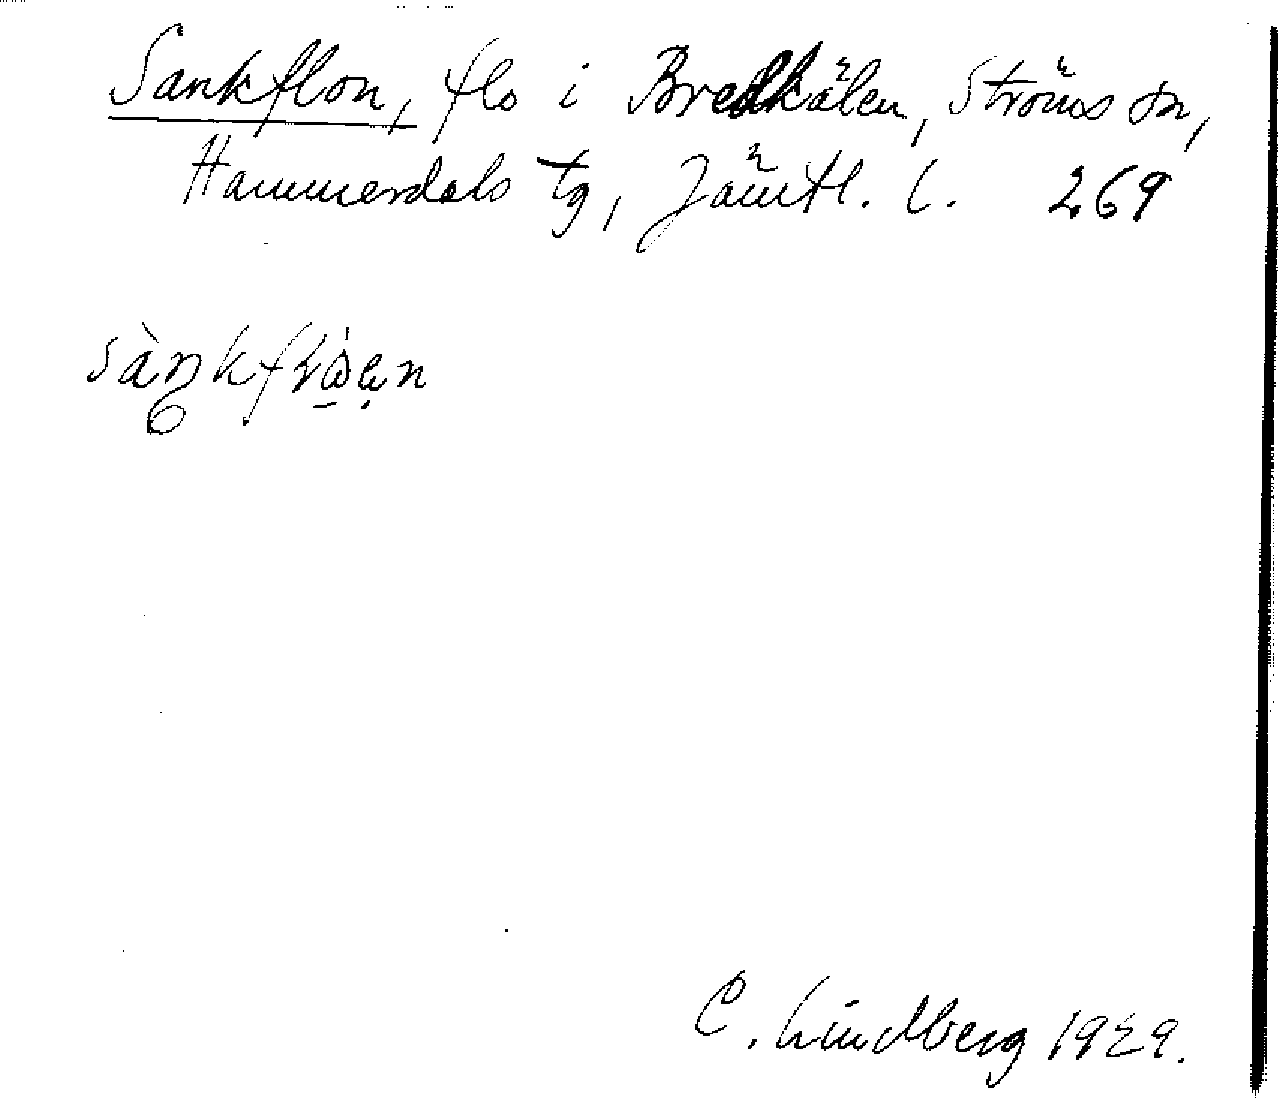 Sankflon, flo i Bredkälen, Ströms sn,
Hammerdals tg, Jämtl. l. 269
C. Lindberg 1929.